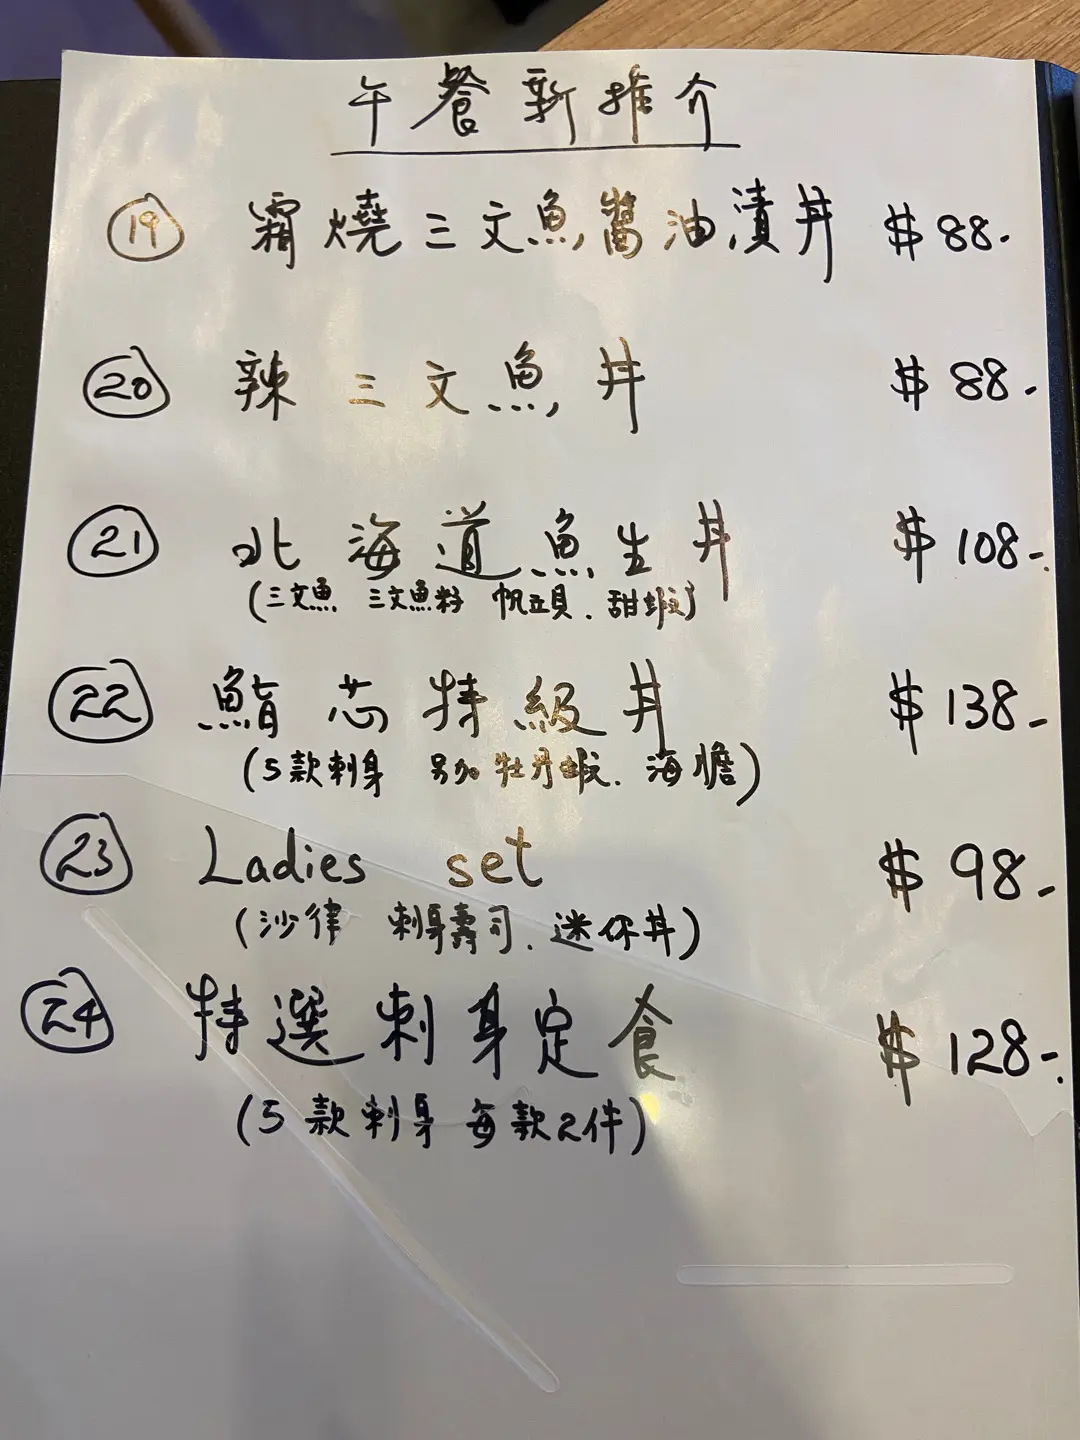 午餐新推介
19 霜燒三文魚醬油漬丼 $88.
20 辣三文魚丼 $88-
21 北海道魚生丼 $108-
(三文魚 三文魚籽 帆立貝. 甜蝦)
22 鮨芯特級丼 $138-
(5款刺身 另加牡丹蝦. 海膽)
23 Ladies set $98-
(沙律 刺身壽司. 迷你丼)
24 特選刺身定食 $128-
(5款刺身 每款2件)